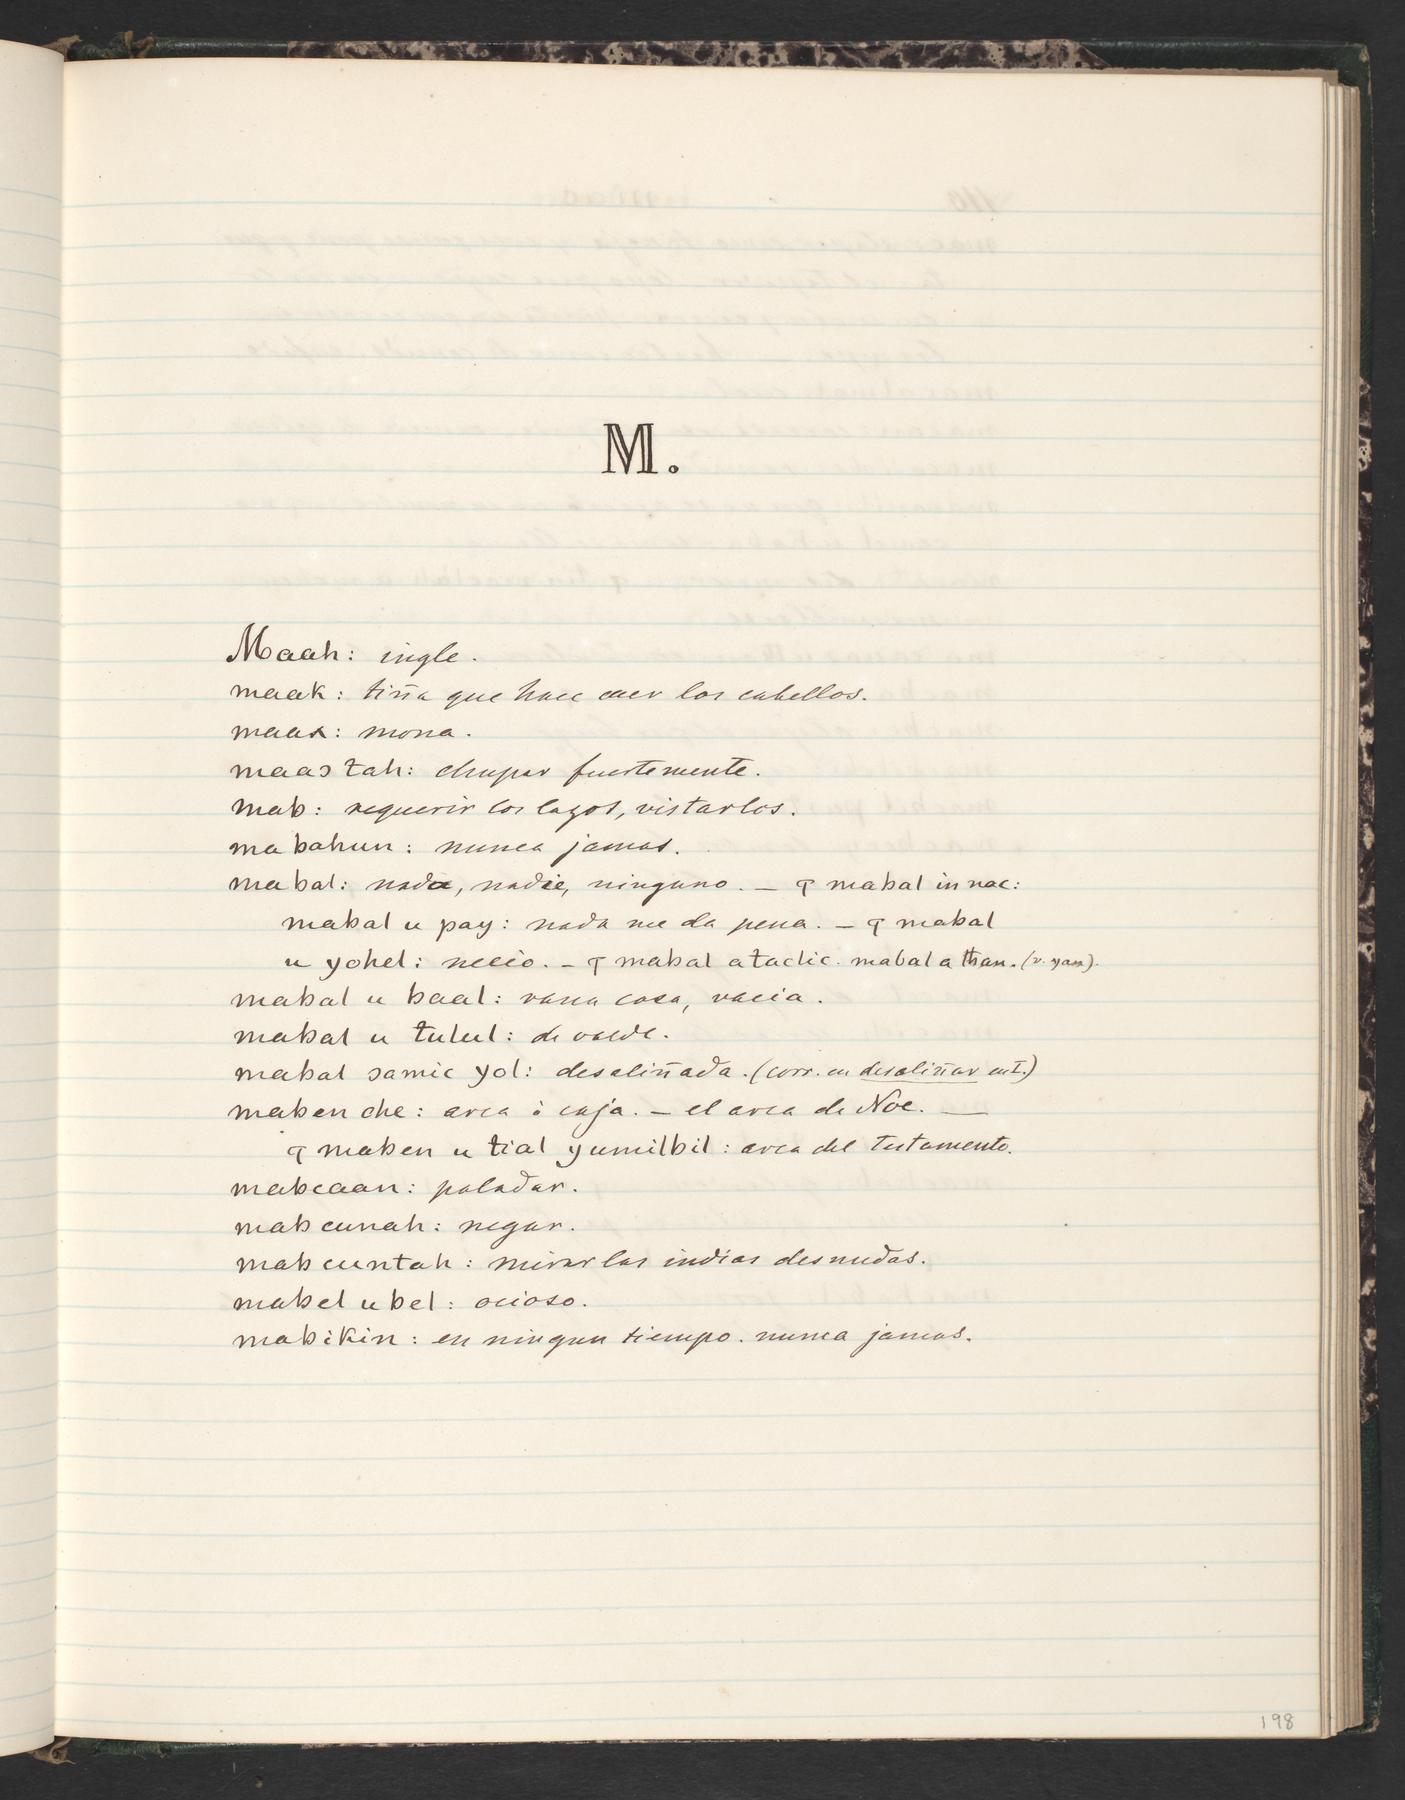 M.
Maah: ingle.
maak: tiña que hace caer los cabellos.
maax: mona.
maaɔ tah: chupar fuertemente.
mab: requerir los lazos, vistarlos.
ma bahun: nunca jamas.
ma bal: nada, nadie, ninguno. — ꟼ mabal in nac:
mabal u pay: nada me da pena. — ꟼ mabal
u yohel: necio. — ꟼ mabal a taclic. mabal a than. (v. yam).
mabal u baal: vana cosa, vacia.
mabal u tulul: de valde.
mabal ɔamic yol: desaliñada. (corr. en desaliñar ent.)
maben che: arca ò caja. — el arca de Noe. —
ꟼ maben u tial yumilbil: arca del testamento.
mabcaan: paladar.
mab cunah: negar.
mab cuntah: mirar las indias desnudas.
mabel u bel: ocioso.
mabikin: en ningun tiempo. nunca jamas.
198